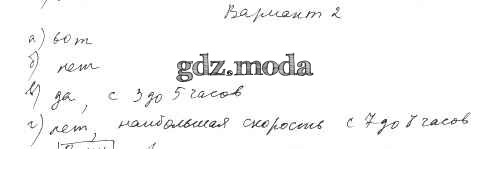 Вариант 2
а) 60 т
б) нет
gdz.moda
в) да, с 3 до 5 часов
г) нет, наибольшая скорость с 7 до 8 часов